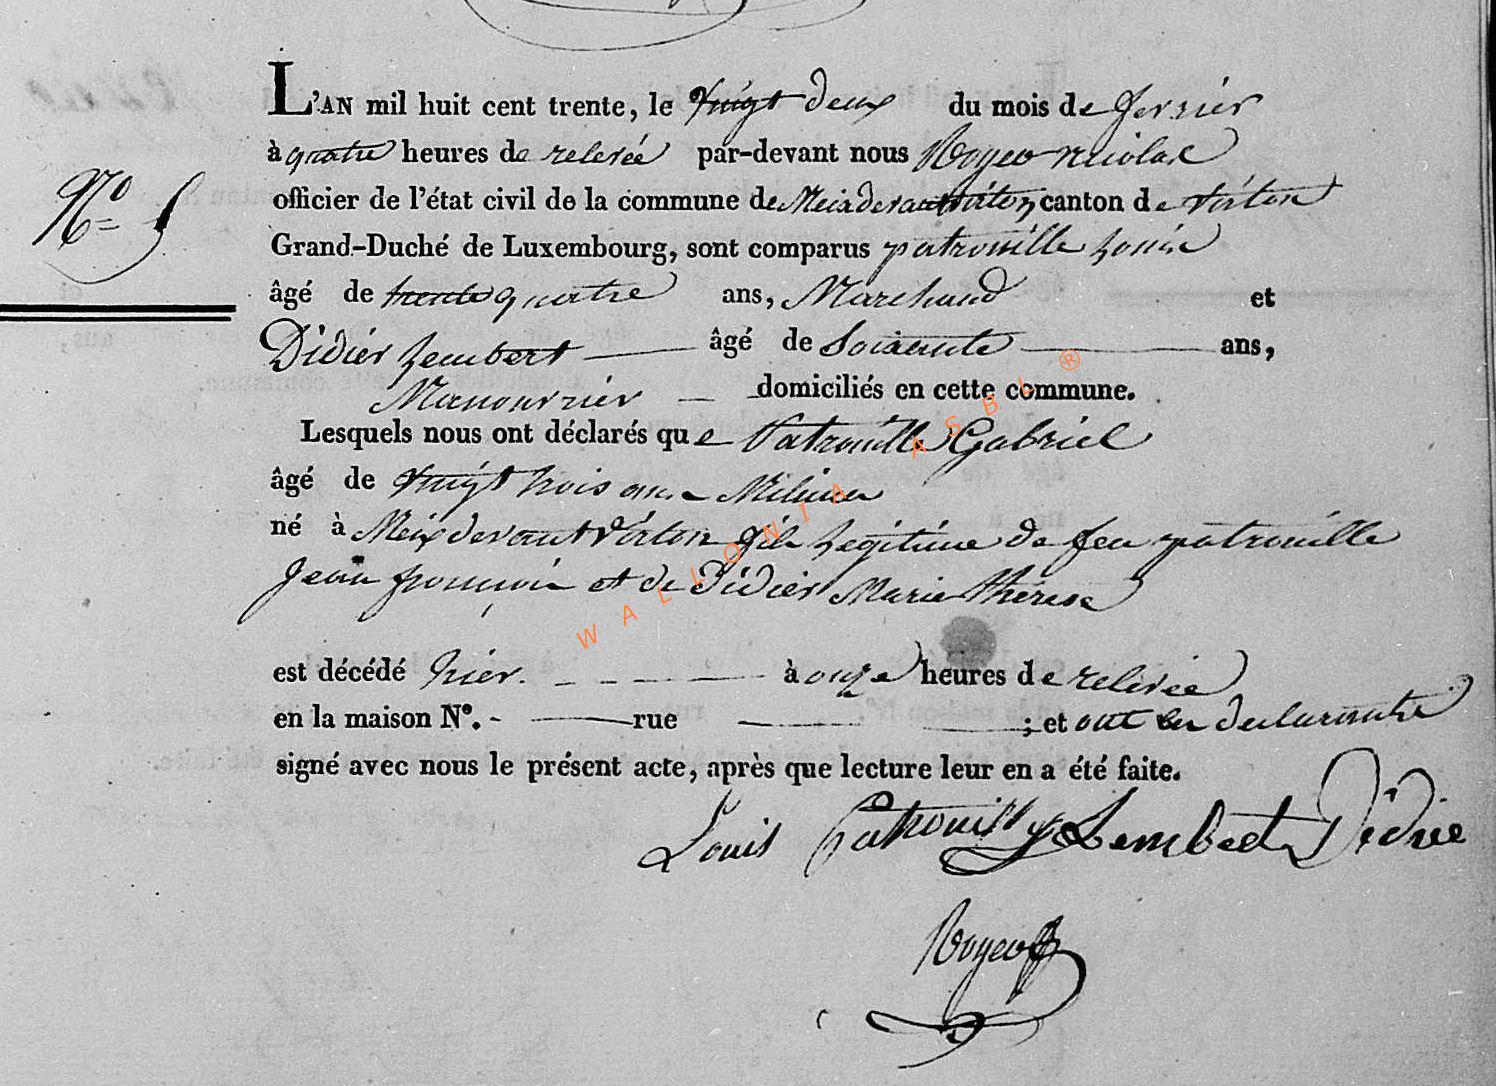 L'AN mil huit cent trente, le vingt deux du mois de fevrier
à quatre heures de relevée par-devant nous Royer Nicolas
N° 5
officier de l'état civil de la commune de Meix devant virton canton de virton
Grand-Duché de Luxembourg, sont comparus patrouille Louis
âgé de trente quatre ans, Marchand et
Didier Lembert âgé de Soixante ans,
Manouvrier domiciliés en cette commune.
Lesquels nous ont déclarés que Patrouille Gabriel
âgé de vingt trois ans
né à Meix devant Virton fils Legitime de feu patrouille
Jean françois et de Didier Marie thérese
est décédé hier. à onze heures de relevée
en la maison N°. rue ; et ont les declarants
signé avec nous le présent acte, après que lecture leur en a été faite.
Louis Patrouille Lembert Didier
Royer
WALLONIA ASBL ®